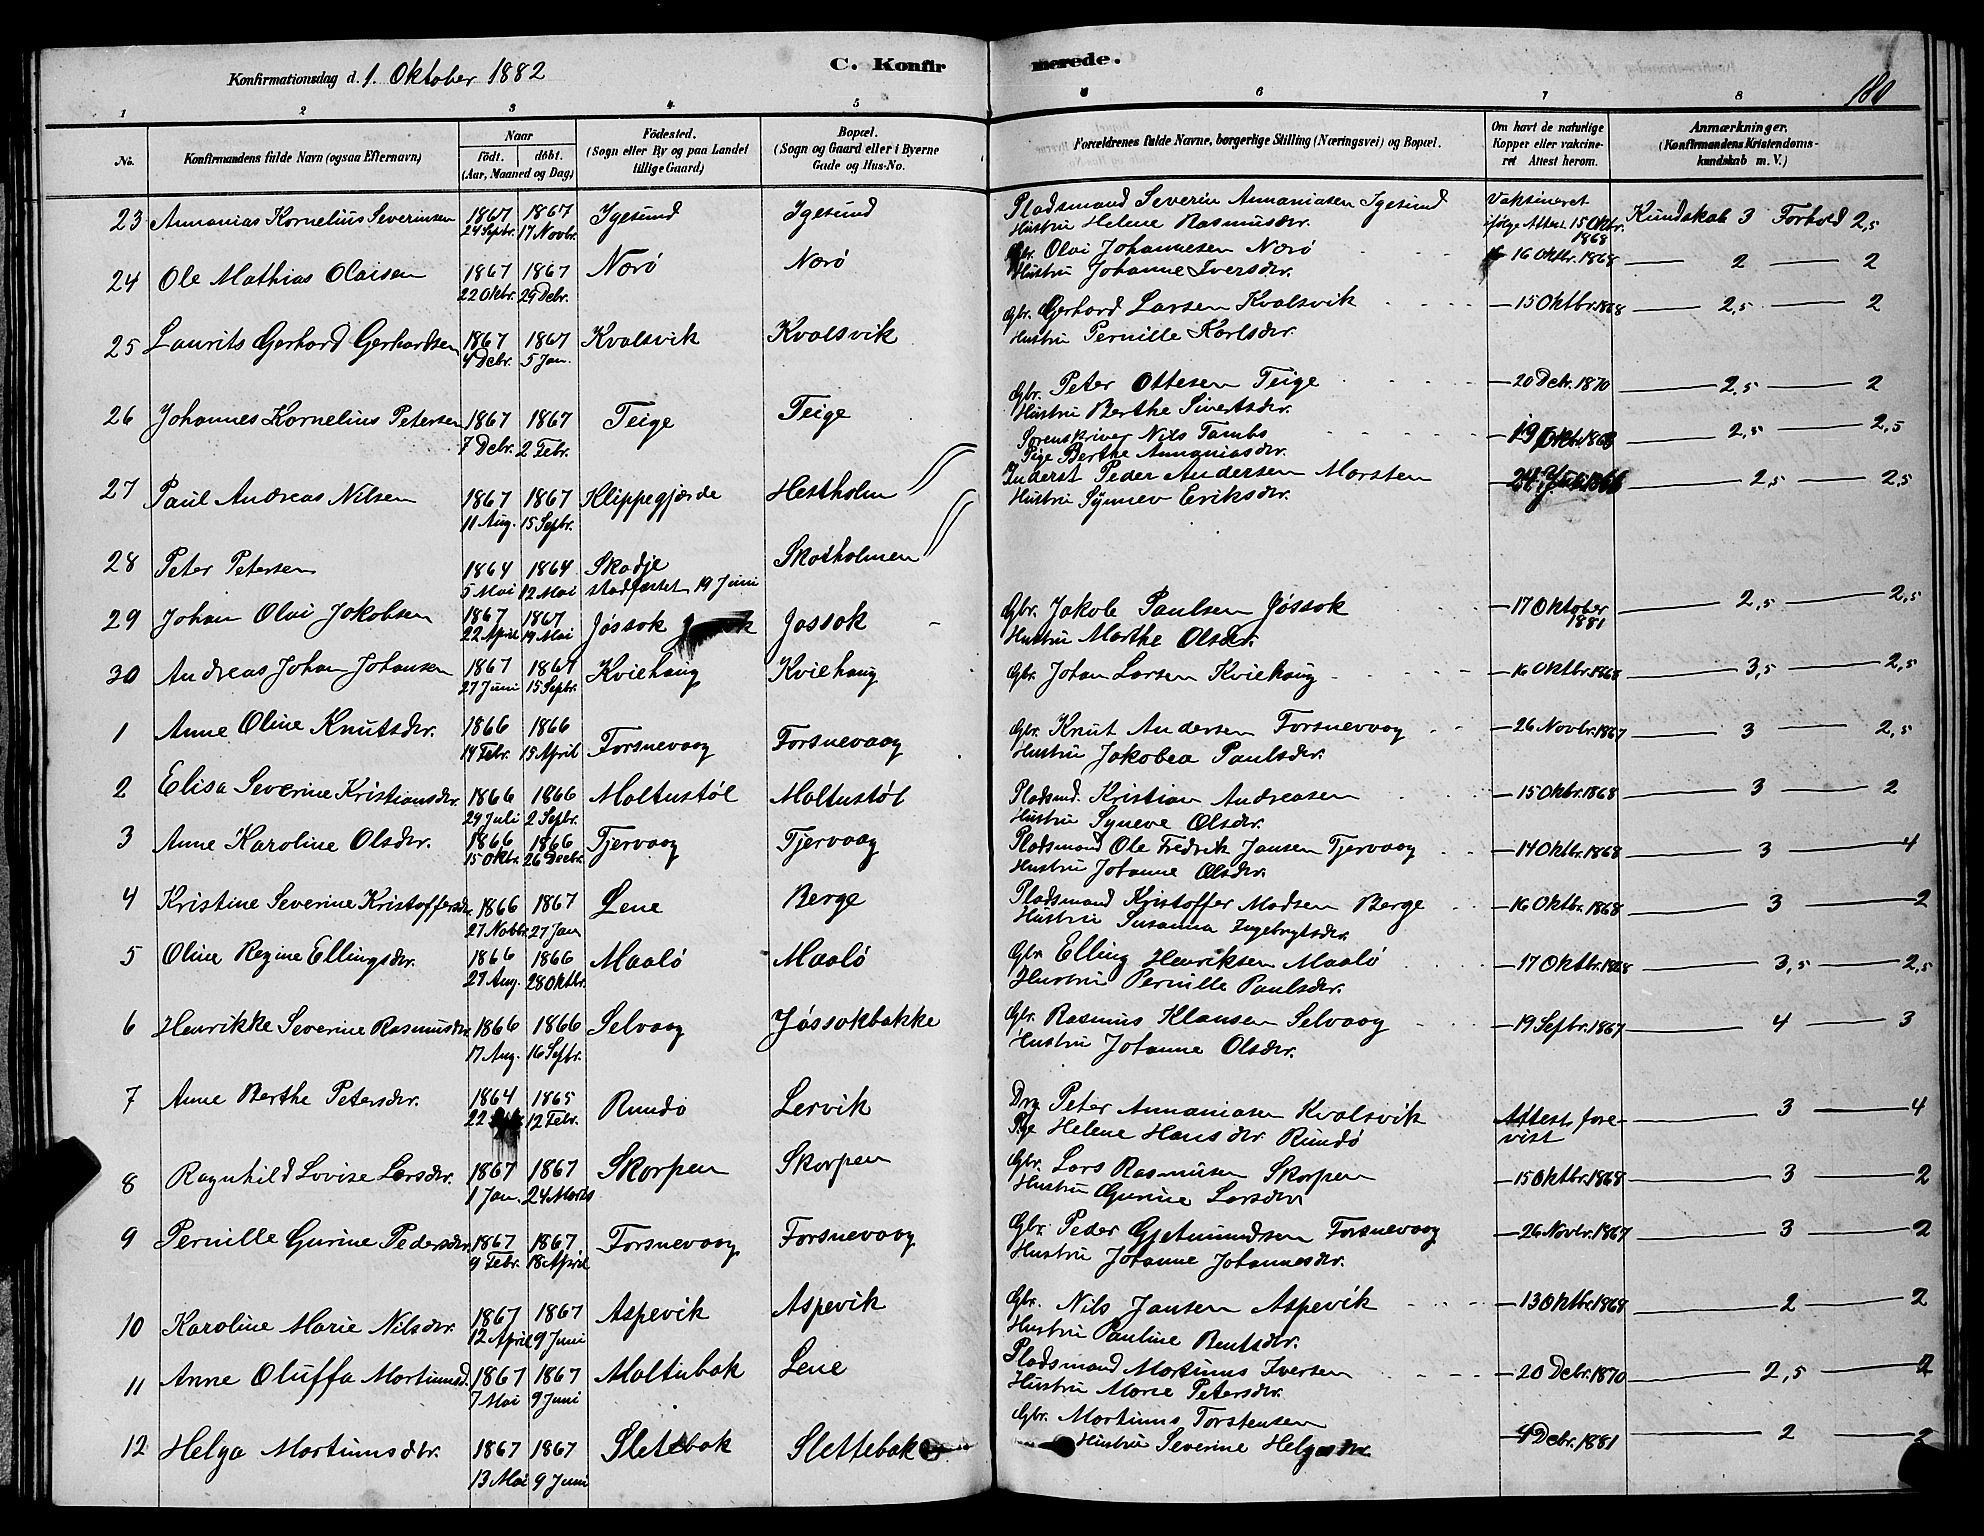 Konfirmationsdag d. 1. Oktober 1882
C. Konfirmerede.
180
1 2 3 4 5 6 7 8
No. Konfirmandens fulde Navn (ogsaa Efternavn) Naar født. døbt. (Aar, Maaned og Dag) Fødested. (Sogn eller By og paa Landet tillige Gaard) Bopæl. (Sogn og Gaard eller i Byerne Gade og Hus-No. Forældrenes fulde Navne, borgerlige Stilling (Næringsvei) og Bopæl. Om havt de naturlige Kopper eller vakcineret Attest herom. Anmærkninger. (Konfirmandens Kristendomskundskab m. V.)
23 Annanias Kornelius Severinsen 1867 24 Septbr. 1867 17 Novbr. Igesund Igesund Pladsmand Severin Annaniasen Igesund Hustru Helene Rasmusdtr. Vaksineret ifølge Attest 15 Oktbr. 1868 Kundskab 3 Forhold 2,5
24 Ole Mathias Olaisen 1867 22 Oktbr. 1867 29 Debr. Nærø Nærø Gbr. Olai Johannesen Nærø Hustru Johanne Iversdtr. 16 Oktbr. 1868 — 2 — 2
25 Laurits Gerhard Gerhardsen 1867 4 Debr. 1867 5 Jan. Kvalsvik Kvalsvik Gbr. Gerhard Larsen Kvalsvik Hustru Pernille Karlsdtr. — 15 Oktbr. 1868 — 2,5 — 2
26 Johannes Kornelius Petersen 1867 7 Debr. 1867 2 Febr. Teige Teige Gbr. Peter Ottesen Teige Hustru Berthe Sivertsdtr. — 20 Debr. 1870 — 2,5 — 2
27 Paul Andreas Nilsen 1867 11 Aug. 1867 15 Septbr. Klippegjerde Hestholm Sorenskriver Nils Tambs Pige Berthe Annaniasdtr. — 19 Oktbr. 1868 — 2,5 — 2,5
28 Peter Petersen 1864 5 Mai 1864 12 Mai Skodje stadfæstet 19 Juni Skotholmen Inderst Peder Andersen Morsten Hustru Synnev Eriksdtr. — 2,5 — 2,5
29 Johan Olai Jakobsen 1867 22 April 1867 19 Mai Jøssok Jøssok Gbr. Jakob Paulsen Jøssok Hustru Marthe Olsdtr. — 17 Oktober 1881 — 2,5 — 2,5
30 Andreas Johan Johansen 1867 27 Juni 1867 15 Septbr. Kviehaug Kviehaug Gbr. Johan Larsen Kviehaug — 16 Oktbr. 1868 — 3,5 — 2,5
1 Anne Oline Knutsdtr. 1866 14 Febr. 1866 15 April Torsnevaag Torsnevaag Gbr. Knut Andersen Torsnevaag Hustru Jakobea Paulsdtr. — 26 Novbr. 1867 — 3 — 2,5
2 Elisa Severine Kristiansdtr. 1866 29 Juli 1866 2 Septbr. Moltustøl Moltustøl Pladsmd. Kristian Andreasen Hustru Syneve Olsdtr. — 15 Oktbr. 1868 — 3 — 2
3 Anne Karoline Olsdtr. 1866 15 Oktbr. 1866 26 Decbr. Tjervaag Tjervaag Pladsmand Ole Fredrik Jansen Tjervaag Hustru Johanne Olsdtr. — 14 Oktbr. 1868 — 3 — 4
4 Kristine Severine Kristoffersdtr. 1866 27 Novbr. 1867 27 Jan Lene Berge Pladsmand Kristoffer Madsen Berge Hustru Susanna Ingebrigtsdtr. — 16 Oktbr. 1868 — 3 — 2
5 Oline Regine Ellingsdtr. 1866 27 Aug. 1866 28 Oktbr. Maalø Maalø Gbr. Elling Henriksen Maalø Hustru Pernille Paulsdtr. — 17 Oktbr. 1868 — 3,5 — 2,5
6 Henrikke Severine Rasmusdtr. 1866 17 Aug. 1866 16 Septbr. Selvaag Jøssokbakke Gbr. Rasmus Klausen Selvaag Hustru Johanne Olsdtr. — 19 Septbr. 1867 — 4 — 3
7 Anne Berthe Petersdtr. 1864 22 1865 12 Febr. Rundø Lervik Drg. Peter Annaniasen Kvalsvik Pige Helene Hansdtr. Rundø Attest forevist — 3 — 4
8 Ragnhild Lovise Larsdtr. 1867 1 Jan. 1867 24 Marts Skorpen Skorpen Gbr. Lars Rasmusen Skorpen Hustru Gurine Larsdtr — 15 Oktbr. 1868 — 3 — 2
9 Pernille Gurine Pedersdtr. 1867 9 Febr. 1867 18 April Torsnevaag Torsnevaag Gbr. Peder Gjetmundsen Torsnevaag Hustru Johanne Johannesdtr. — 26 Novbr. 1867 — 3 — 2
10 Karoline Marie Nilsdtr. 1867 12 April 1867 9 Juni Aspevik Aspevik Gbr. Nils Jansen Aspevik Hustru Pauline Bentsdtr. — 13 Oktbr. 1869 — 2 — 2
11 Anne Oluffa Martinusd. 1867 7 Mai 1867 9 Juni Moltubak Lene Pladsmand Martinus Iversen Hustru Marie Petersdtr. — 20 Debr. 1870 — 2,5 — 2
12 Helga Martinusdtr. 1867 13 Mai 1867 9 Juni Sletebak Slettebak Gbr. Martinus Torstensen Hustru Severine Helgesdtr — 9 Debr. 1881 — 2 — 2